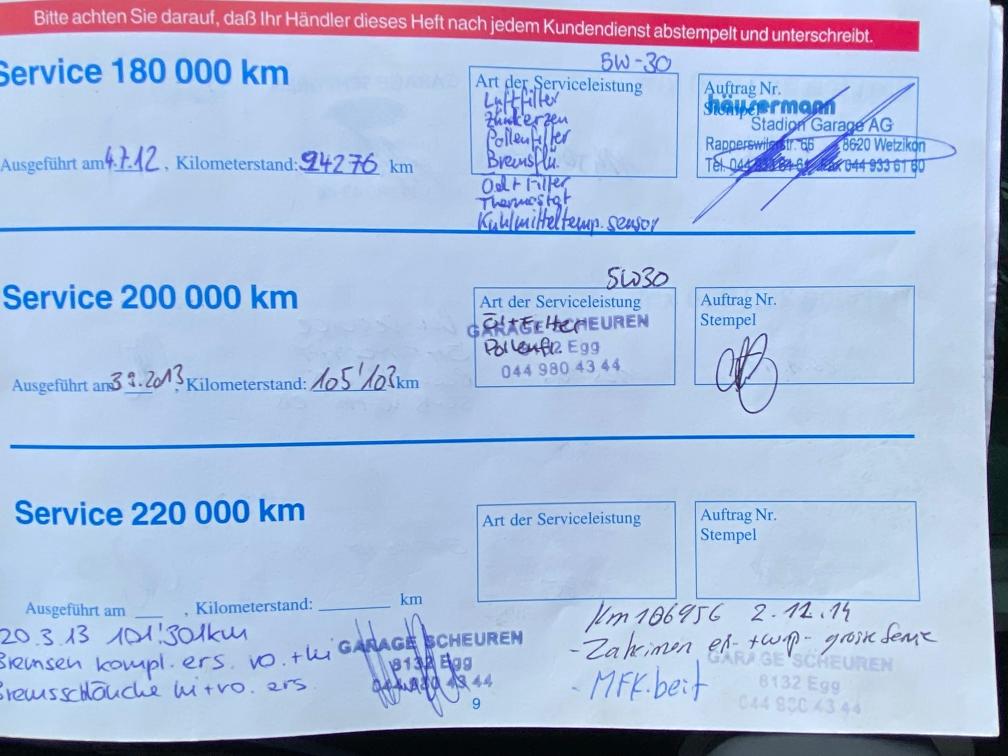 Bitte achten Sie darauf, daß Ihr Händler dieses Heft nach jedem Kundendienst abstempelt und unterschreibt.
Service 180 000 km
5W-30
Art der Serviceleistung
Luftfilter
Zünkerzen
Pollenfilter
Bremsflü.
Oel + Filter
Thermostat
Kühlmitteltemp. sensor
Auftrag Nr.
Stempel
häusermann
Stadion Garage AG
Rapperswilerstr. 66 8620 Wetzikon
Tel. 044 933 61 61 Fax 044 933 61 60
Ausgeführt am 4.7.12, Kilometerstand: 94276 km
Service 200 000 km
5W30
Art der Serviceleistung
Öl + Filter
Pollenfi.
GARAGE SCHEUREN
8132 Egg
044 980 43 44
Auftrag Nr.
Stempel
Ausgeführt am 3 9.2013, Kilometerstand: 105'103 km
Service 220 000 km
Art der Serviceleistung
Auftrag Nr.
Stempel
Ausgeführt am , Kilometerstand: km
20.3.13 101'301km
Bremsen kompl. ers. vo. + hi
Bremsschläuche hi + vo. ers
GARAGE SCHEUREN
8132 Egg
044 980 43 44
km 106956 2.12.14
- Zahnrimen er. + wp - grosse
- MFK.beit
GARAGE SCHEUREN
8132 Egg
044 980 43 44
9